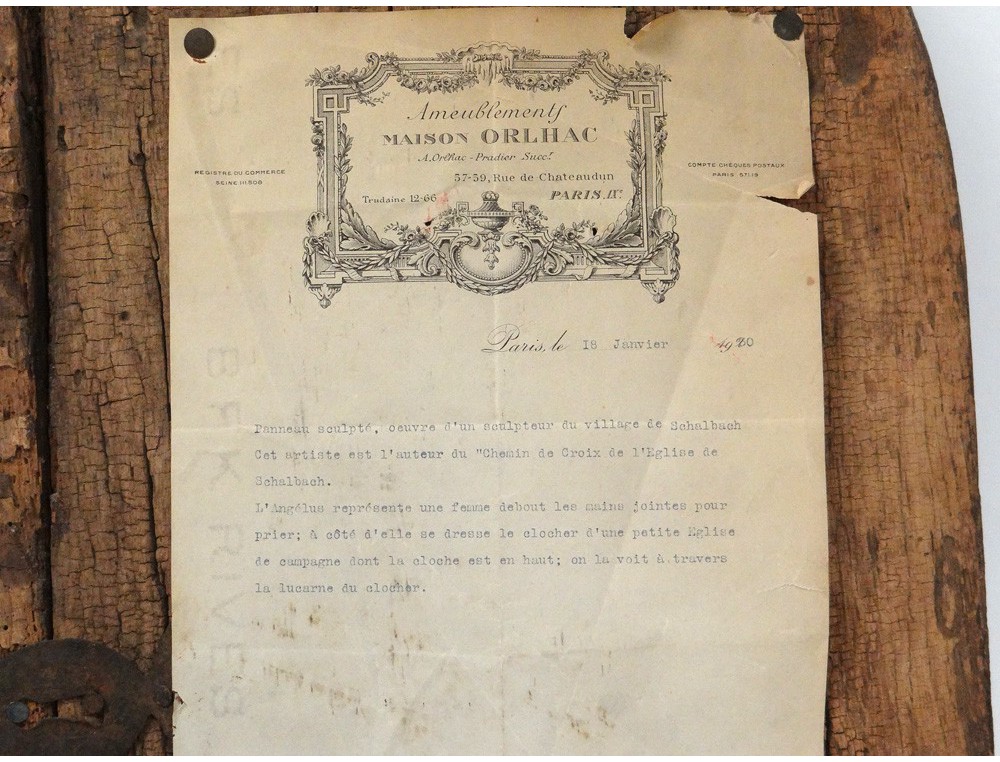 Ameublements
MAISON ORLHAC
A. Orlhac - Pradier Succr.
REGISTRE DU COMMERCE
SEINE 111.508
COMPTE CHÈQUES POSTAUX
PARIS 571.19
57-59, Rue de Chateaudun
Trudaine 12-66
PARIS. IXe.
Paris, le 18 Janvier 1930
Panneau sculpté, oeuvre d'un sculpteur du village de Schalbach
Cet artiste est l'auteur du "Chemin de Croix de l'Eglise de
Schalbach.
L'Angélus représente une femme debout les mains jointes pour
prier; à côté d'elle se dresse le clocher d'une petite Eglise
de campagne dont la cloche est en haut; on la voit à travers
la lucarne du clocher.